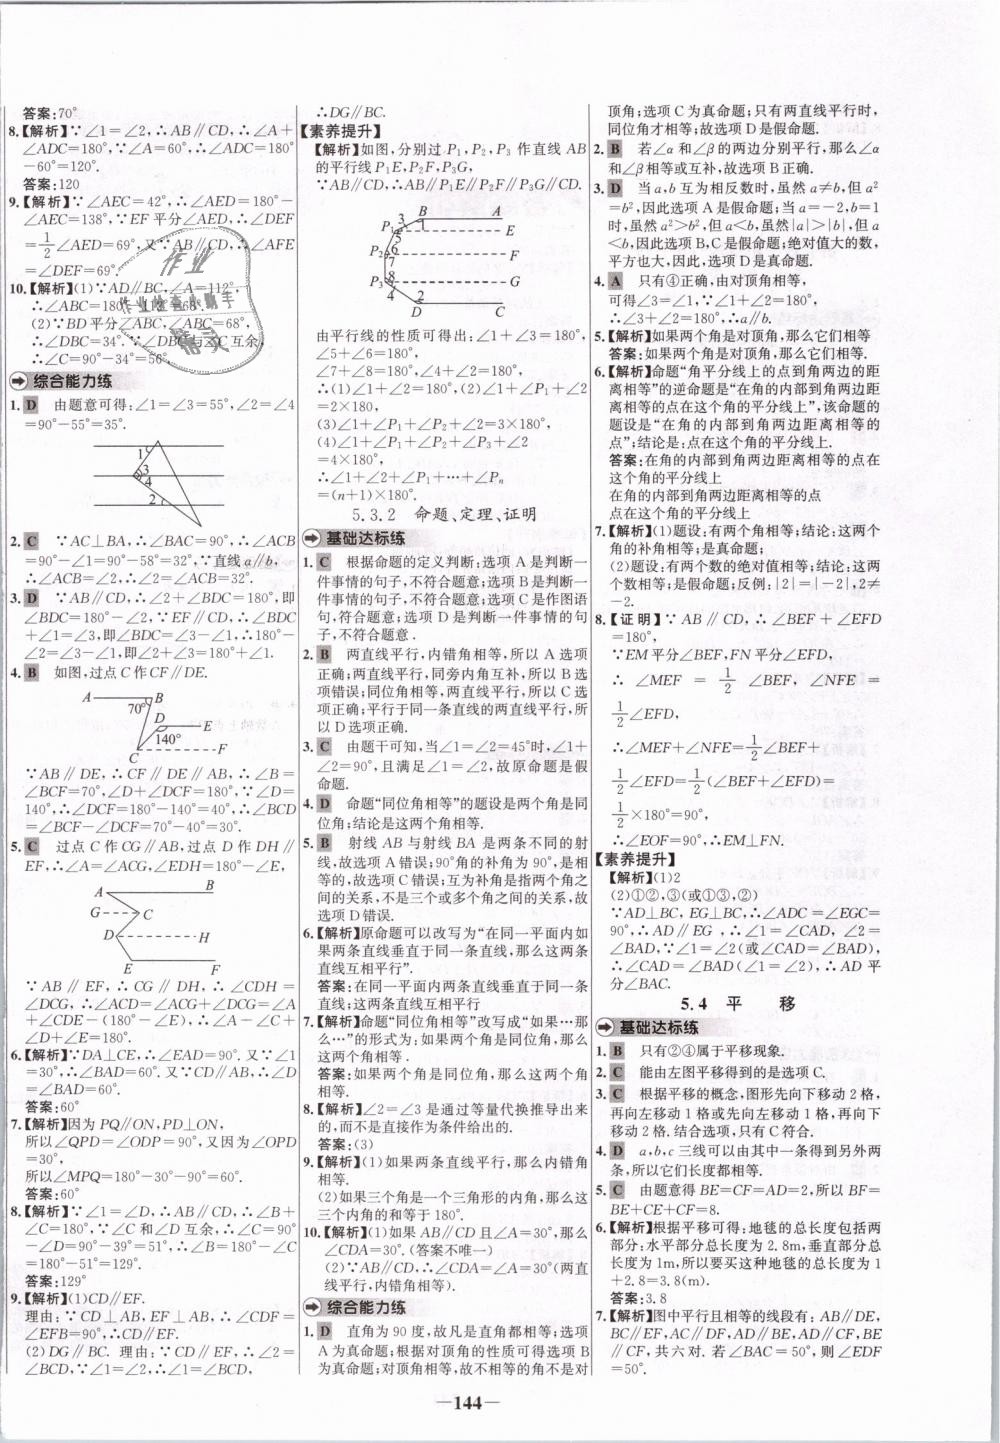 答案:70°
8.【解析】∵∠1=∠2,∴AB∥CD,∴∠A+
∠ADC=180°,∵∠A=60°,∴∠ADC=180°
-60°=120°.
答案:120
9.【解析】∵∠AEC=42°,∴∠AED=180°-
∠AEC=138°,∵EF平分∠AED,∴∠DEF
=1/2∠AED=69°,又∵AB∥CD,∴∠AFE
=∠DEF=69°.
10.【解析】(1)∵AD∥BC,∠A=112°,
∴∠ABC=180°-112°=68°.
(2)∵BD平分∠ABC,∠ABC=68°,
∴∠DBC=34°.∵∠DBC与∠C互余,
∴∠C=90°-34°=56°.
综合能力练
1. D 由题意可得:∠1=∠3=55°,∠2=∠4
=90°-55°=35°.
1
3
4
2
2. C ∵AC⊥BA,∴∠BAC=90°,∴∠ACB
=90°-∠1=90°-58°=32°,∵直线a∥b,
∴∠ACB=∠2,∴∠2=∠ACB=32°.
3. D ∵AB∥CD,∴∠2+∠BDC=180°,即
∠BDC=180°-∠2,∵EF∥CD,∴∠BDC
+∠1=∠3,即∠BDC=∠3-∠1,∴180°-
∠2=∠3-∠1,即∠2+∠3=180°+∠1.
4. B 如图,过点C作CF∥DE.
A B
70°
D E
140°
C F
∵AB∥DE,∴CF∥DE∥AB,∴∠B=
∠BCF=70°,∠D+∠DCF=180°,∵∠D=
140°,∴∠DCF=180°-140°=40°,∴∠BCD
=∠BCF-∠DCF=70°-40°=30°.
5. C 过点C作CG∥AB,过点D作DH∥
EF,∴∠A=∠ACG,∠EDH=180°-∠E,
A B
G C
D H
E F
∵AB∥EF,∴CG∥DH,∴∠CDH=
∠DCG,∴∠ACD=∠ACG+∠DCG=∠A
+∠CDE-(180°-∠E),∴∠A-∠C+
∠D+∠E=180°.
6.【解析】∵DA⊥CE,∴∠EAD=90°.又∵∠1
=30°,∴∠BAD=60°.又∵CD∥AB,∴∠D
=∠BAD=60°.
答案:60°
7.【解析】因为PQ∥ON,PD⊥ON,
所以∠QPD=∠ODP=90°,又因为∠OPD
=30°,
所以∠MPQ=180°-30°-90°=60°.
答案:60°
8.【解析】∵∠1=∠D,∴AB∥CD,∴∠B+
∠C=180°,∵∠C和∠D互余,∴∠C=90°
-∠D=90°-39°=51°,∴∠B=180°-∠C
=180°-51°=129°.
答案:129°
9.【解析】(1)CD∥EF.
理由:∵CD⊥AB,EF⊥AB,∴∠CDF=
∠EFB=90°,∴CD∥EF.
(2)DG∥BC. 理由:∵CD∥EF,∴∠2=
∠BCD,∵∠1=∠2,∴∠1=∠BCD,
∴DG∥BC.
【素养提升】
【解析】如图,分别过P₁,P₂,P₃作直线AB
的平行线P₁E,P₂F,P₃G,
∵AB∥CD,∴AB∥P₁E∥P₂F∥P₃G∥CD.
3 B A
1
P₁ 5 E
P₂ 6 F
7
P₃ 8 G
4 2
D C
由平行线的性质可得出:∠1+∠3=180°,
∠5+∠6=180°,
∠7+∠8=180°,∠4+∠2=180°,
∴(1)∠1+∠2=180°,(2)∠1+∠P₁+∠2
=2×180°,
(3)∠1+∠P₁+∠P₂+∠2=3×180°,
(4)∠1+∠P₁+∠P₂+∠P₃+∠2
=4×180°,
∴∠1+∠2+∠P₁+⋯+∠Pₙ
=(n+1)×180°.
5.3.2 命题、定理、证明
基础达标练
1. C 根据命题的定义判断:选项A是判断一
件事情的句子,不符合题意;选项B是判断一
件事情的句子,不符合题意;选项C是作图语
句,符合题意;选项D是判断一件事情的句
子,不符合题意.
2. B 两直线平行,内错角相等,所以A选项
正确;两直线平行,同旁内角互补,所以B选
项错误;同位角相等,两直线平行,所以C选
项正确;平行于同一条直线的两直线平行,所
以D选项正确.
3. C 由题干可知,当∠1=∠2=45°时,∠1+
∠2=90°,且满足∠1=∠2,故原命题是假命
题.
4. D 命题“同位角相等”的题设是两个角是同
位角;结论是这两个角相等.
5. B 射线AB与射线BA是两条不同的射
线,故选项A错误;90°角的补角为90°,是相
等的,故选项C错误;互为补角是指两个角之
间的关系,不是三个或多个角之间的关系,故
选项D错误.
6.【解析】原命题可以改写为“在同一平面内如
果两条直线垂直于同一条直线,那么这两条
直线互相平行”.
答案:在同一平面内两条直线垂直于同一条
直线;这两条直线互相平行
7.【解析】命题“同位角相等”改写成“如果⋯那
么⋯”的形式为:如果两个角是同位角,那么
这两个角相等.
答案:如果两个角是同位角,那么这两个角相
等
8.【解析】∠2=∠3是通过等量代换推导出来
的,而不是直接作为条件给出的.
答案:(3)
9.【解析】(1)如果两条直线平行,那么内错角
相等.
(2)如果三个角是一个三角形的内角,那么这
三个内角的和等于180°.
10.【解析】(1)如果AB∥CD且∠A=30°,那么
∠CDA=30°.(答案不唯一)
(2)∵AB∥CD,∴∠CDA=∠A=30°(两直
线平行,内错角相等).
综合能力练
1. D 直角为90度,故凡是直角都相等;选项
A为真命题;根据对顶角的性质可得选项B
为真命题;对顶角相等,故不相等的角不是对
顶角;选项C为真命题;只有两直线平行时,
同位角才相等;故选项D是假命题.
2. B 若∠α和∠β的两边分别平行,那么∠α
和∠β相等或互补,故选项B正确.
3. D 当a,b互为相反数时,虽然a≠b,但a²
=b²,因此选项A是假命题;当a=-2,b=1
时,虽然a²>b²,但a<b,虽然|a|>|b|,但a
<b,因此选项B,C是假命题;绝对值大的数,
平方也大,因此选项D是真命题.
4. A 只有④正确,由对顶角相等,
可得∠3=∠1,∵∠1+∠2=180°,
∴∠3+∠2=180°,∴a∥b.
5.【解析】如果两个角是对顶角,那么它们相等
答案:如果两个角是对顶角,那么它们相等
6.【解析】命题“角平分线上的点到角两边的距
离相等”的逆命题是“在角的内部到角两边距
离相等的点在这个角的平分线上”,该命题的
题设是“在角的内部到角两边距离相等的
点”;结论是:点在这个角的平分线上.
答案:在角的内部到角两边距离相等的点在
这个角的平分线上
在角的内部到角两边距离相等的点
点在这个角的平分线上
7.【解析】(1)题设:有两个角相等;结论:这两个
角的补角相等;是真命题;
(2)题设:有两个数的绝对值相等;结论:这两
个数相等;是假命题;反例:|2|=|-2|,2≠
-2.
8.【证明】∵AB∥CD,∴∠BEF+∠EFD
=180°,
∵EM平分∠BEF,FN平分∠EFD,
∴∠MEF=1/2∠BEF,∠NFE=
1/2∠EFD,
∴∠MEF+∠NFE=1/2∠BEF+
1/2∠EFD=1/2(∠BEF+∠EFD)=
1/2×180°=90°,
∴∠EOF=90°,∴EM⊥FN.
【素养提升】
【解析】(1)2
(2)①②,③(或①③,②)
∵AD⊥BC,EG⊥BC,∴∠ADC=∠EGC=
90°,∴AD∥EG,∴∠1=∠CAD,∠2=
∠BAD,∵∠1=∠2(或∠CAD=∠BAD),
∴∠CAD=∠BAD(∠1=∠2),∴AD平
分∠BAC.
5.4 平 移
基础达标练
1. B 只有②④属于平移现象.
2. C 能由左图平移得到的是选项C.
3. C 根据平移的概念,图形先向下移动2格,
再向左移动1格或先向左移动1格,再向下
移动2格.结合选项,只有C符合.
4. D a,b,c三线可以由其中一条得到另外两
条,所以它们长度都相等.
5. C 由题意得BE=CF=AD=2,所以BF=
BE+CE+CF=8.
6.【解析】根据平移可得:地毯的总长度包括两
部分:水平部分总长度为2.8m,垂直部分总
长度为1m,所以要买这种地毯的总长度为1
+2.8=3.8(m).
答案:3.8
7.【解析】图中平行且相等的线段有:AB∥DE,
BC∥EF,AC∥DF,AD∥BE,AD∥CF,BE
∥CF,共六对.若∠BAC=50°,则∠EDF
=50°.
—144—
作业
作业检查小助手
精灵